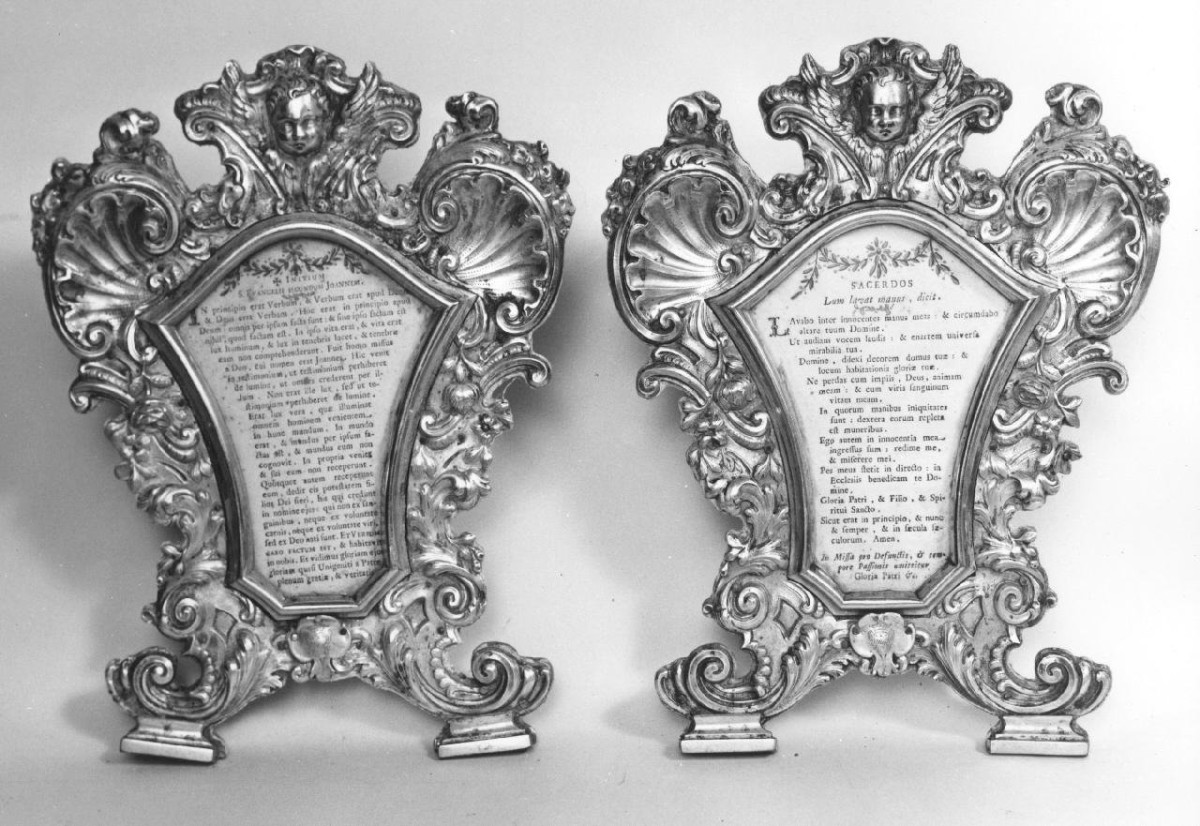 ✠ INITIUM
S. EVANGELII SECUNDUM JOANNEM.
IN principio erat Verbum, & Verbum erat apud Deum
& Deus erat Verbum. Hoc erat in principio apud
Deum: omnia per ipsum facta sunt: & sine ipso factum est
nihil, quod factum est. In ipso vita erat, & vita erat
lux hominum, & lux in tenebris lucet, & tenebræ
eam non comprehenderunt. Fuit homo missus
a Deo, cui nomen erat Joannes. Hic venit
in testimonium, ut testimonium perhiberet
de lumine, ut omnes crederent per il-
lum. Non erat ille lux, sed ut te-
stimonium perhiberet de lumine.
Erat lux vera, quæ illuminat
omnem hominem venientem
in hunc mundum. In mundo
erat, & mundus per ipsum fa-
ctus est, & mundus eum non
cognovit. In propria venit,
& sui eum non receperunt.
Quotquot autem receperunt
eum, dedit eis potestatem fi-
lios Dei fieri, his qui credunt
in nomine ejus: qui non ex san-
guinibus, neque ex voluntate
carnis, neque ex voluntate viri,
sed ex Deo nati sunt. ET VERBUM
CARO FACTUM EST, & habitavit
in nobis. Et vidimus gloriam ejus,
gloriam quasi Unigeniti a Patre
plenum gratiæ, & veritatis
SACERDOS
Cum lavat manus, dicit.
LAvabo inter innocentes manus meas: & circumdabo
altare tuum Domine.
Ut audiam vocem laudis: & enarrem universa
mirabilia tua.
Domine, dilexi decorem domus tuæ: &
locum habitationis gloriæ tuæ.
Ne perdas cum impiis, Deus, animam
meam: & cum viris sanguinum
vitam meam.
In quorum manibus iniquitates
sunt: dextera eorum repleta
est muneribus.
Ego autem in innocentia mea
ingressus sum: redime me,
& miserere mei.
Pes meus stetit in directo: in
Ecclesiis benedicam te Do-
mine.
Gloria Patri, & Filio, & Spi-
ritui Sancto.
Sicut erat in principio, & nunc
& semper, & in sæcula sæ-
culorum. Amen.
In Missis pro Defunctis, & tem-
pore Passionis omittitur
Gloria Patri &c.